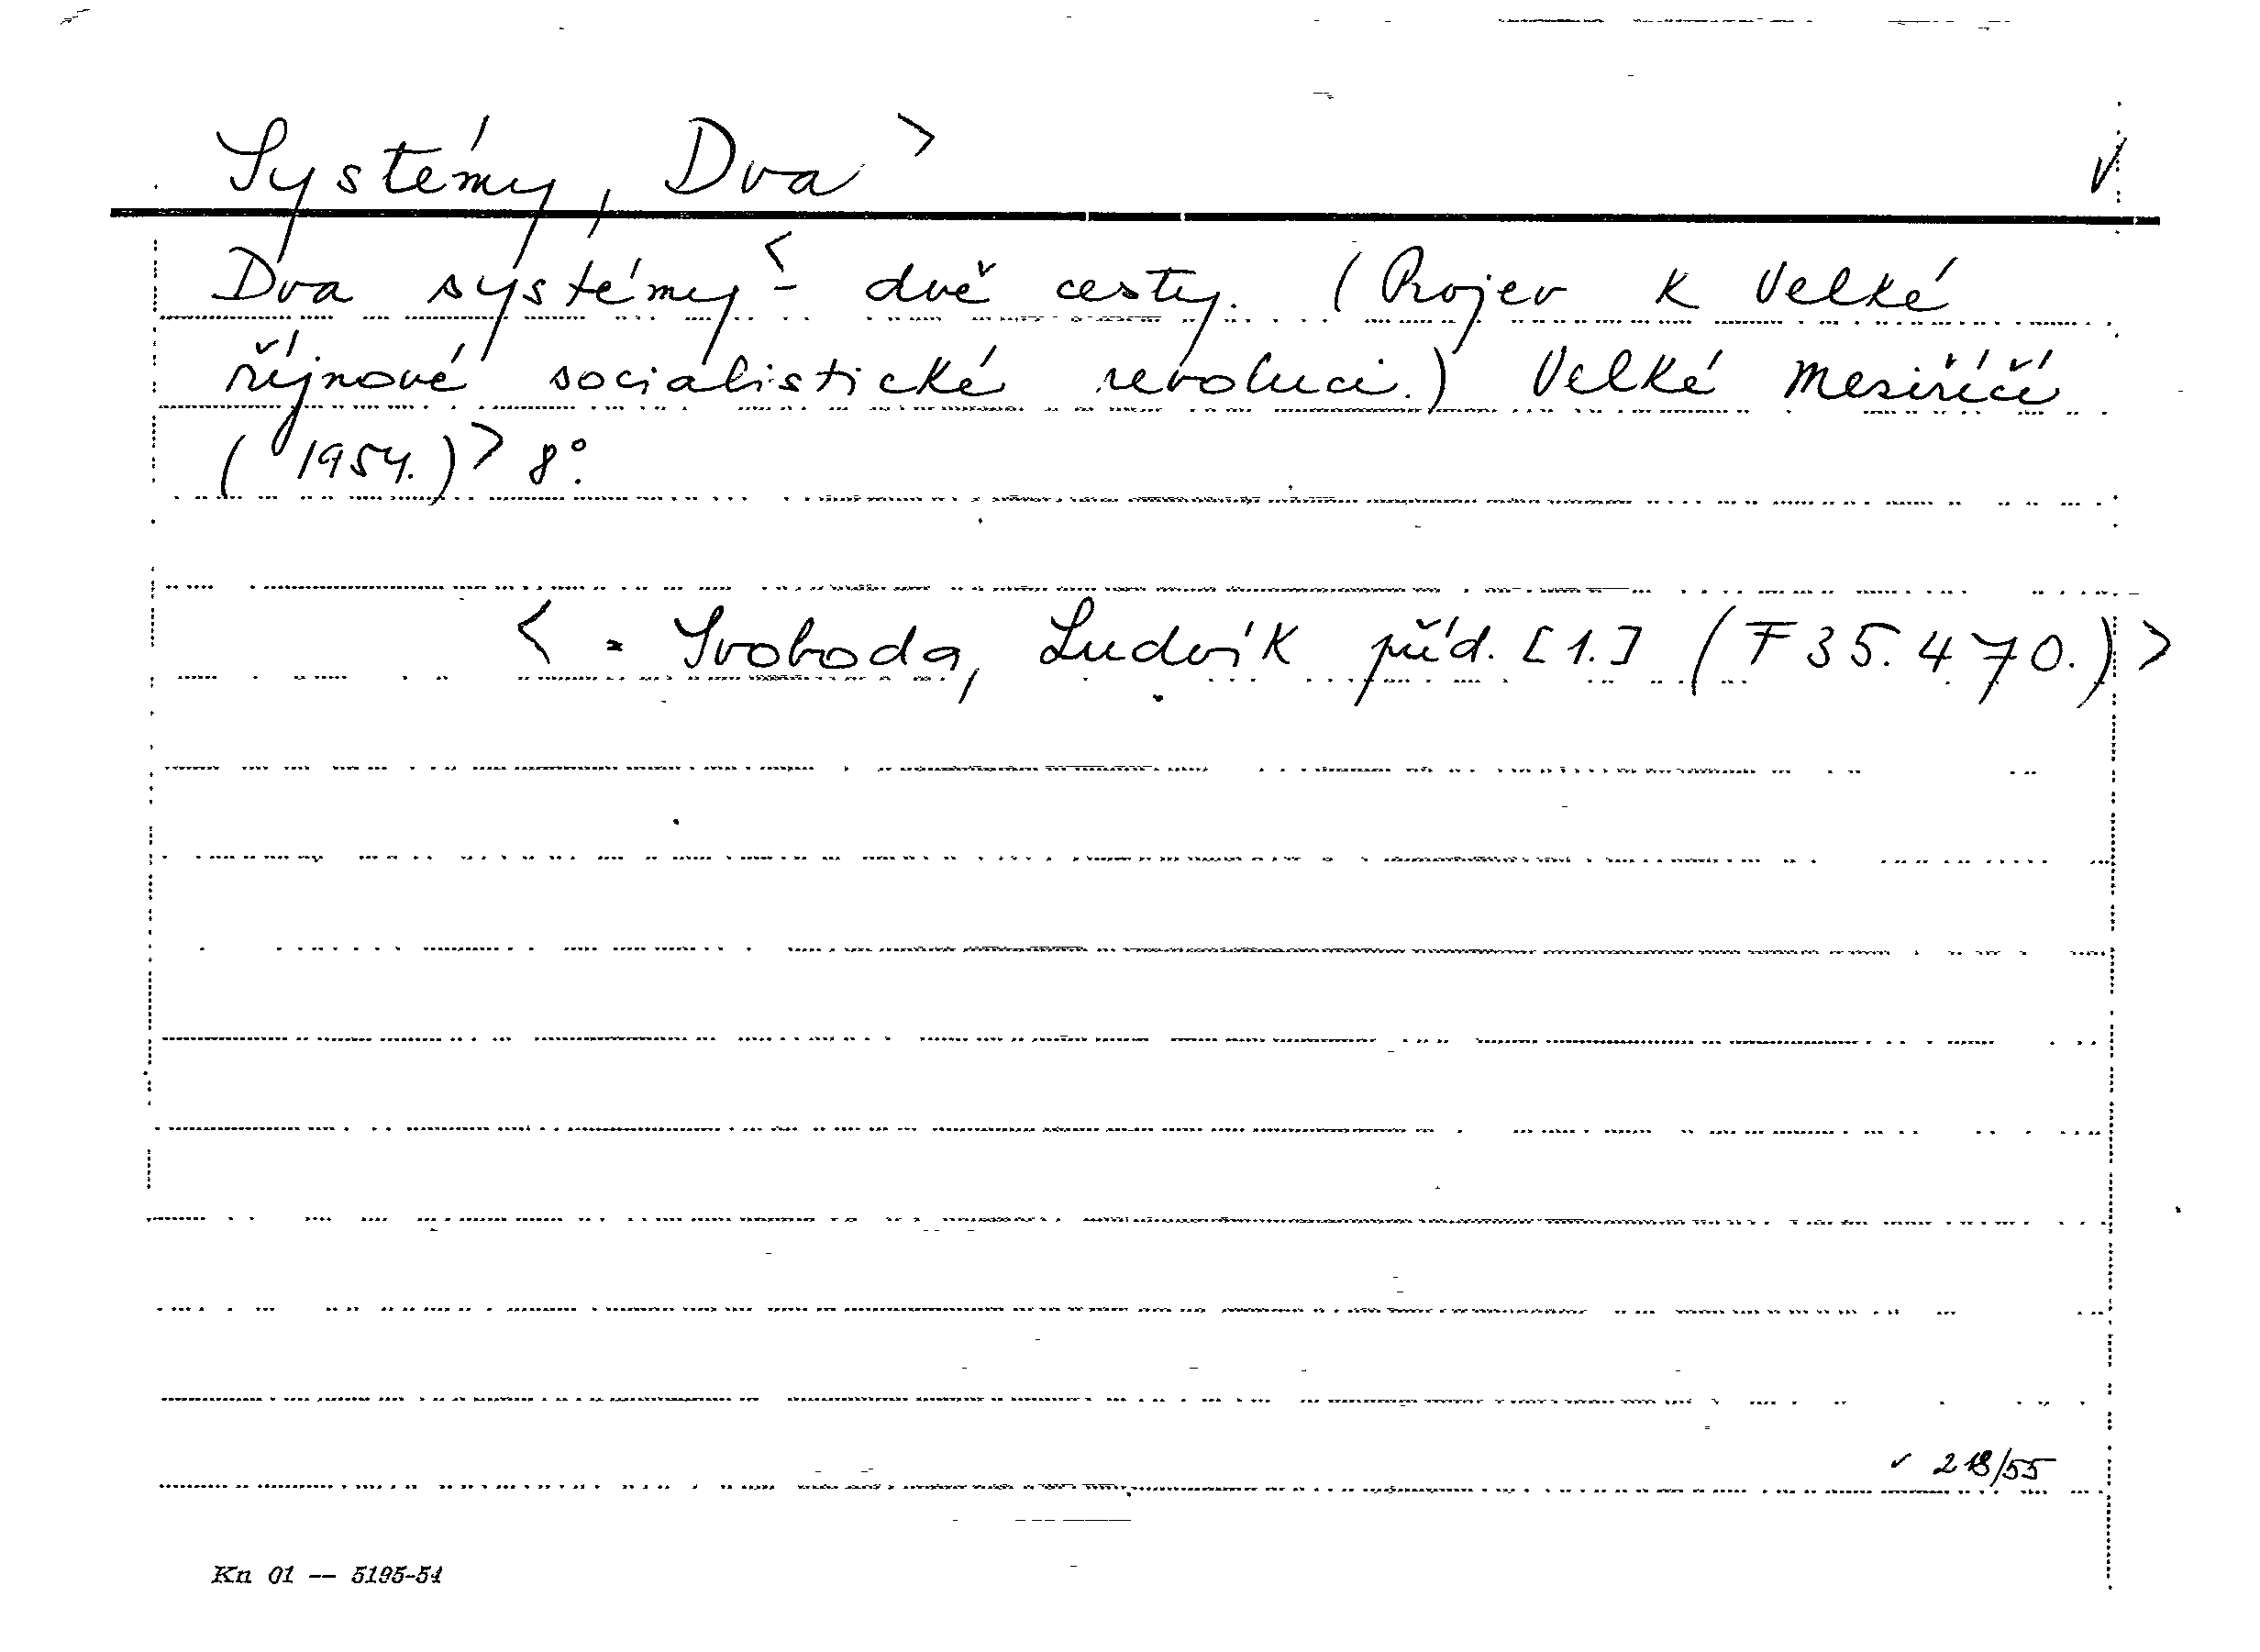 Systémy, Dva > V
Dva systémy < - dvě cesty. (Projev k Velké
říjnové socialistické revoluci.) Velké Meziříčí
(1954.) > 8°.
< = Svoboda, Ludvík příd. [1.] (F 35.470.) >
✓ 218/55
Kn 01 -- 5195-54